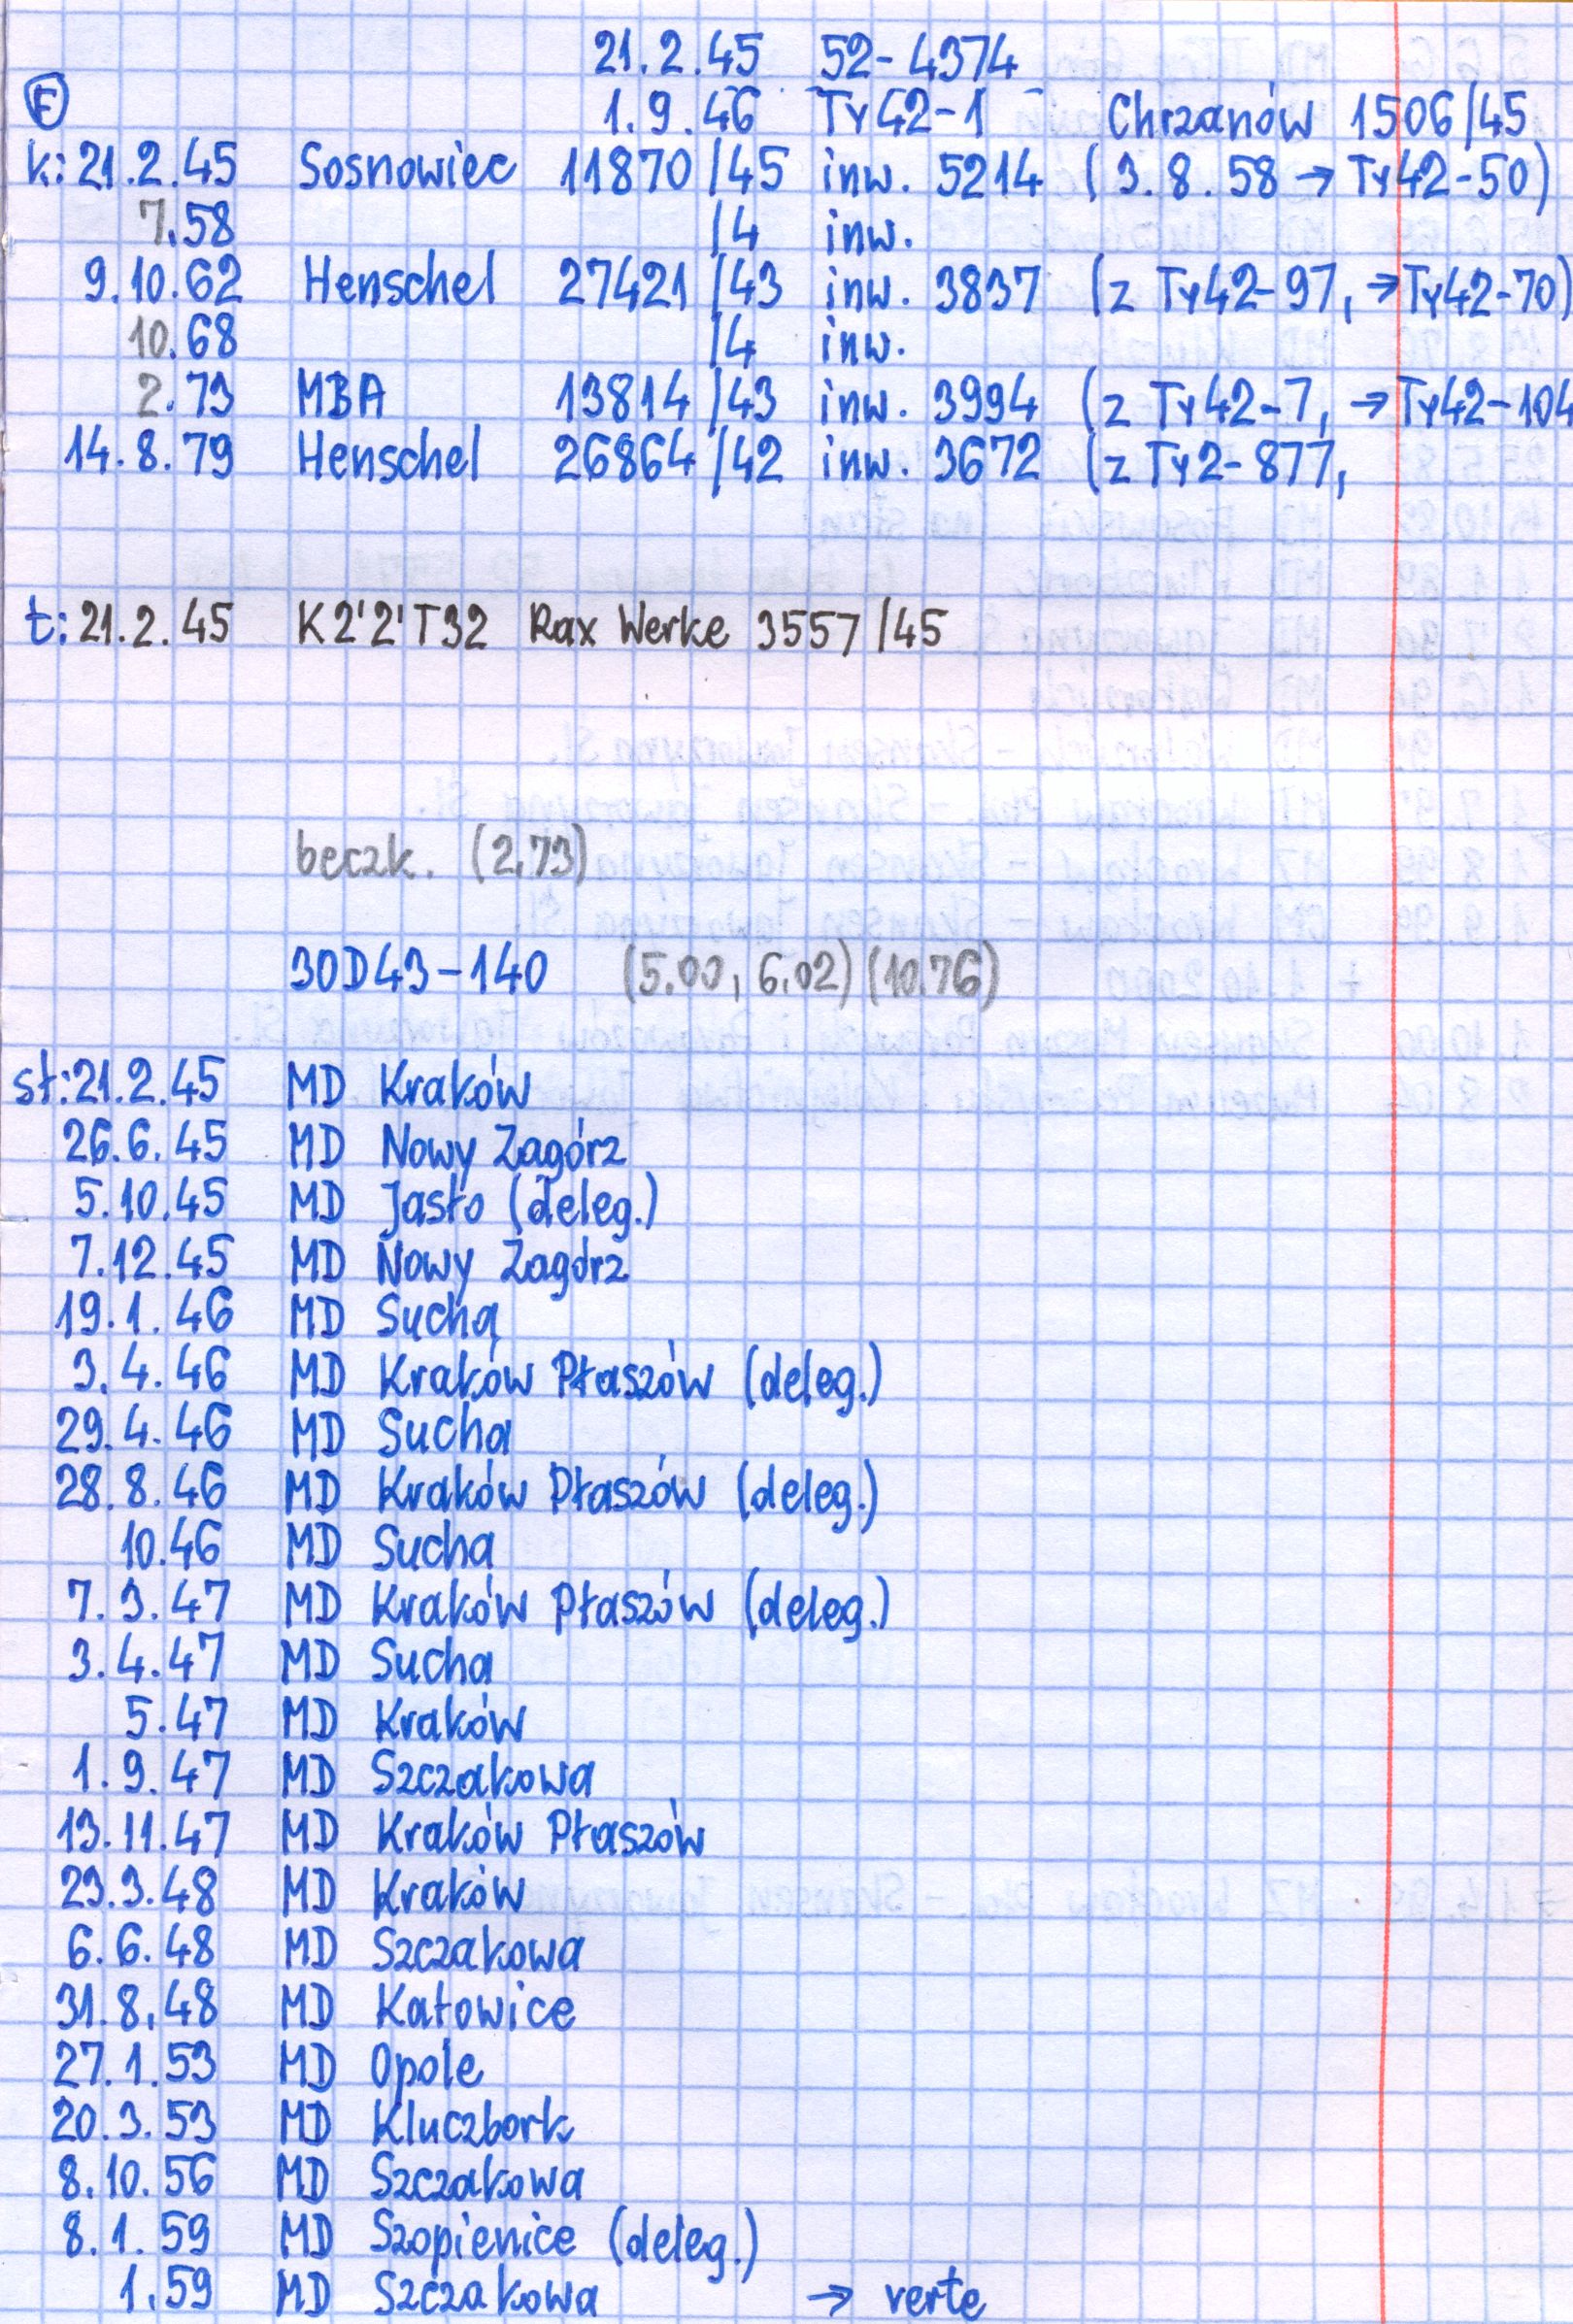 21.2.45 52-4374
Ⓔ 1.9.46 Ty42-1 Chrzanów 1506/45
k: 21.2.45 Sosnowiec 11870/45 inw. 5214 (3.8.58 → Ty42-50)
7.58 /4 inw.
9.10.62 Henschel 27421/43 inw. 3837 (z Ty42-97, → Ty42-70)
10.68 /4 inw.
2.73 MBA 13814/43 inw. 3994 (z Ty42-7, → Ty42-104
14.8.79 Henschel 26864/42 inw. 3672 (z Ty2-877,
t: 21.2.45 K2'2'T32 Rax Werke 3557/45
beczk. (2.73)
30D43-140 (5.00, 6.02) (10.76)
st: 21.2.45 MD Kraków
26.6.45 MD Nowy Zagórz
5.10.45 MD Jasło (deleg.)
7.12.45 MD Nowy Zagórz
19.1.46 MD Sucha
3.4.46 MD Kraków Płaszów (deleg.)
29.4.46 MD Sucha
28.8.46 MD Kraków Płaszów (deleg.)
10.46 MD Sucha
7.3.47 MD Kraków Płaszów (deleg.)
3.4.47 MD Sucha
5.47 MD Kraków
1.9.47 MD Szczakowa
13.11.47 MD Kraków Płaszów
23.3.48 MD Kraków
6.6.48 MD Szczakowa
31.8.48 MD Katowice
27.1.53 MD Opole
20.3.53 MD Kluczbork
8.10.56 MD Szczakowa
8.1.59 MD Szopienice (deleg.)
1.59 MD Szczakowa → verte